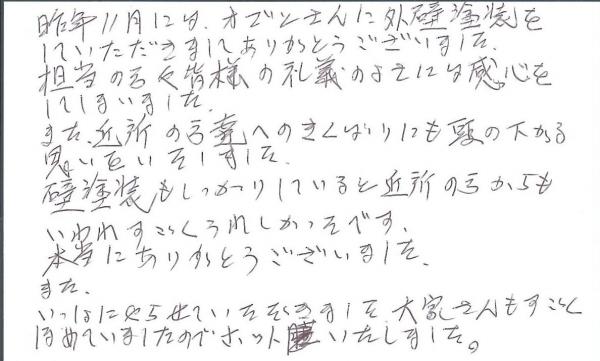 昨年11月には、オゴシさんに外壁塗装を
していただきましてありがとうございました。
担当の方々皆様の礼義のよさには感心を
してしまいました。
また、近所の方達へのきくばりにも頭の下がる
思いをいたしました。
壁塗装もしっかりしていると近所の方からも
いわれすごくうれしかったです。
本当にありがとうございました。
また、
いっしょにやらせていただきました、大家さんもすごく
ほめていましたのでホット いたしました。